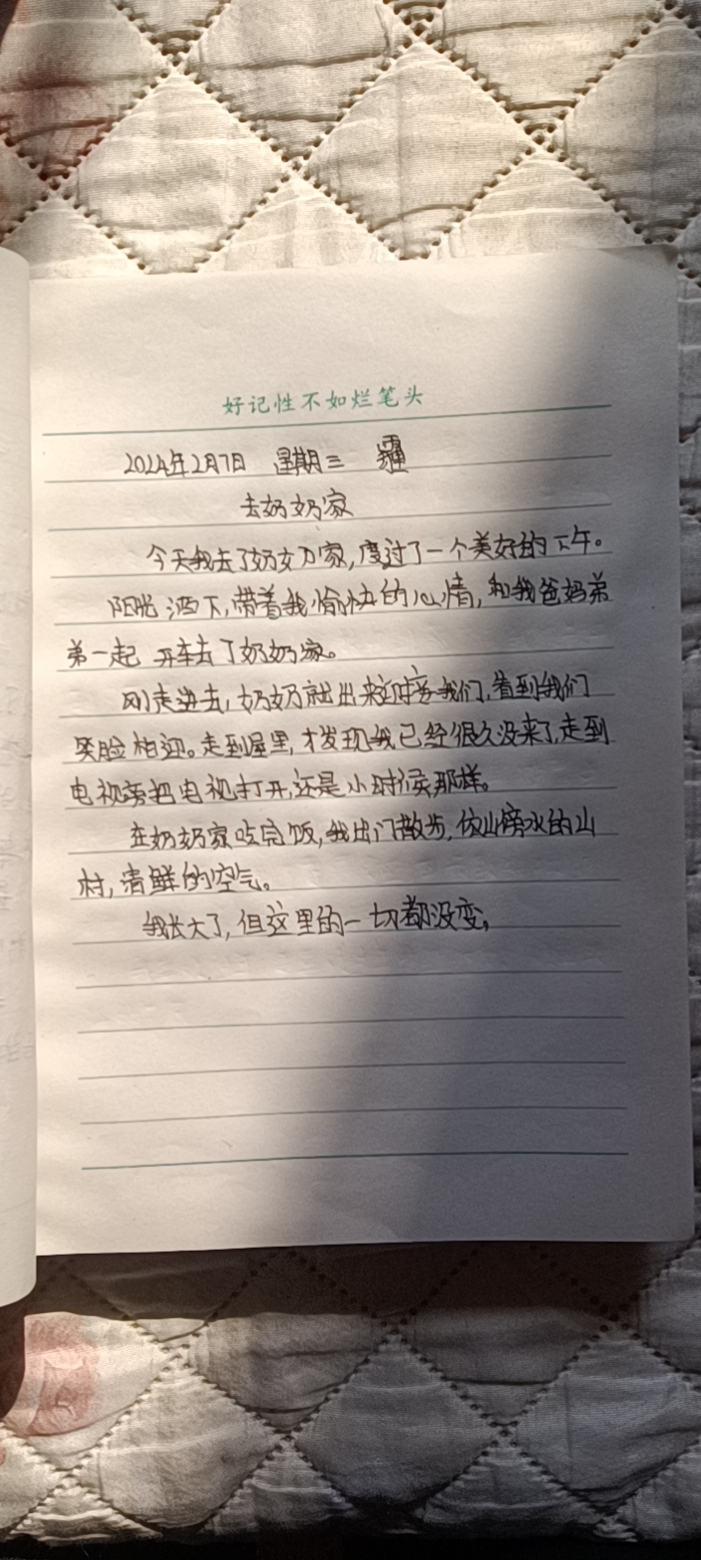 好记性不如烂笔头
2024年2月7日 星期三 霾
去奶奶家
今天我去了奶奶家,度过了一个美好的下午。
阳光洒下,带着我愉快的心情,和我爸妈弟
弟一起 开车去了奶奶家。
刚走进去,奶奶就出来迎接我们,看到我们
笑脸相迎。走到屋里,才发现我已经很久没来了,走到
电视旁把电视打开,还是小时候那样。
在奶奶家吃完饭,我出门散步,依山傍水的山
村,清鲜的空气。
我长大了,但这里的一切都没变。